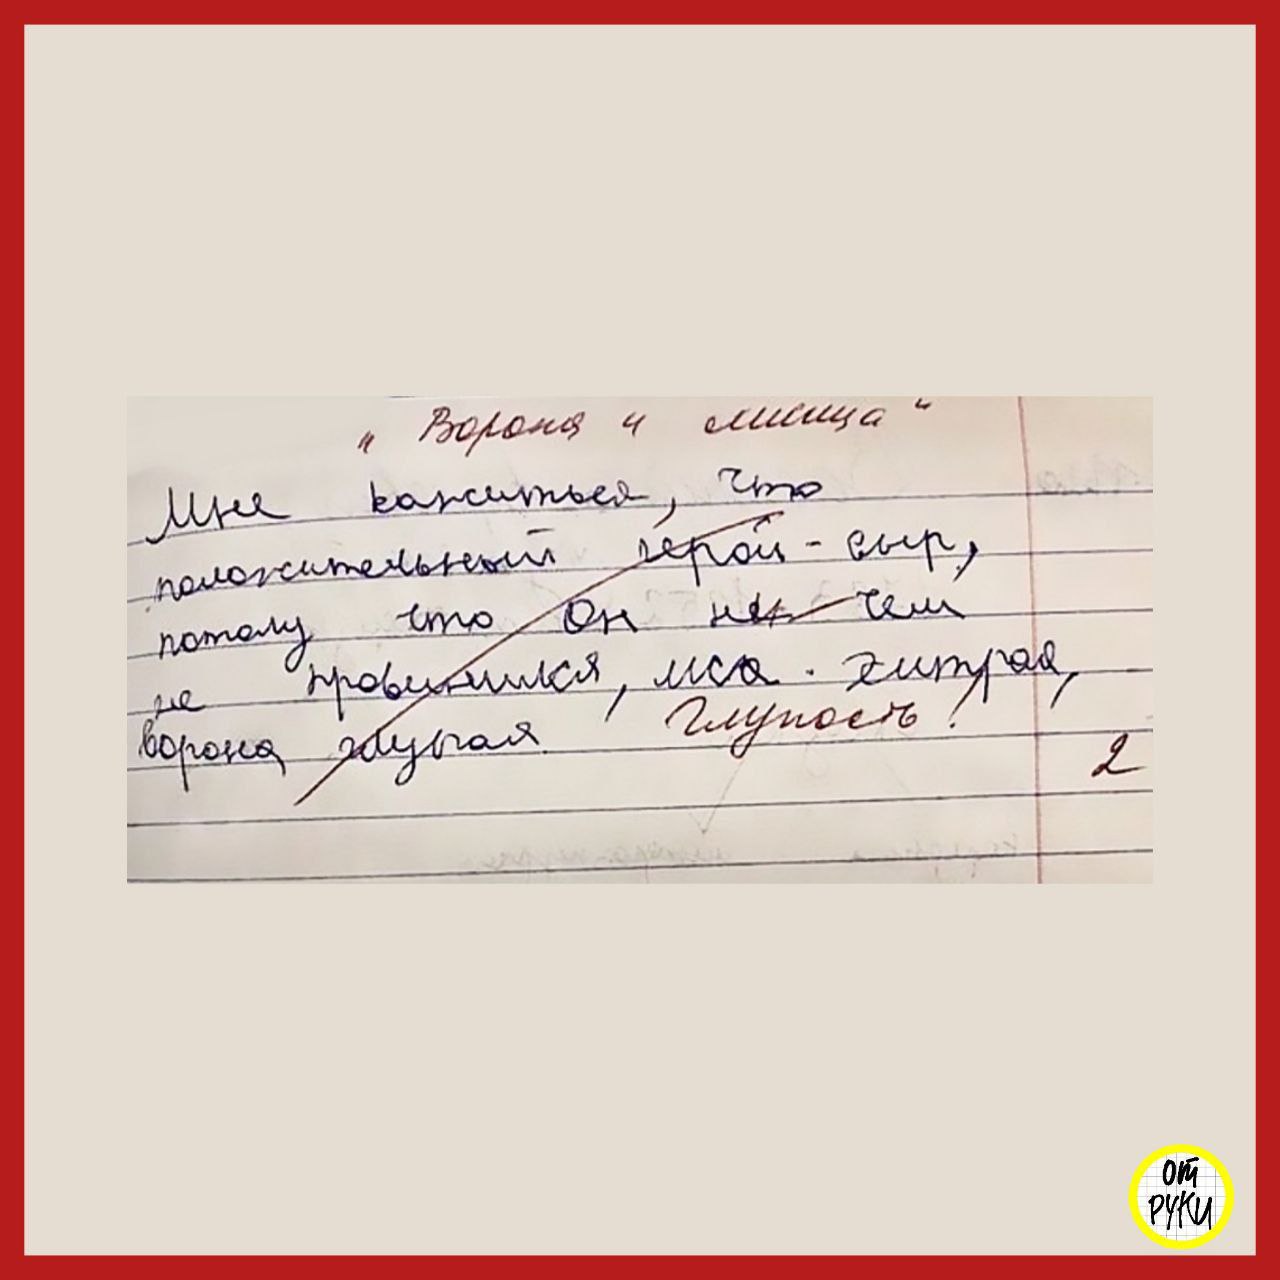 „Ворона и лисица"
Мне кажиться, что
положительный герой - сыр,
потому что он не чем
не провинился, лиса - хитрая,
ворона глупая. Глупость!
2
ОТ
РУКИ